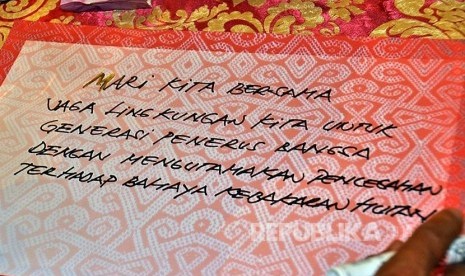 MARI KITA BERSAMA
JAGA LINGKUNGAN KITA UNTUK
GENERASI PENERUS BANGSA
DENGAN MENGUTAMAKAN PENCEGAHAN
TERHADAP BAHAYA KEBAKARAN HUTAN
REPUBLIKA